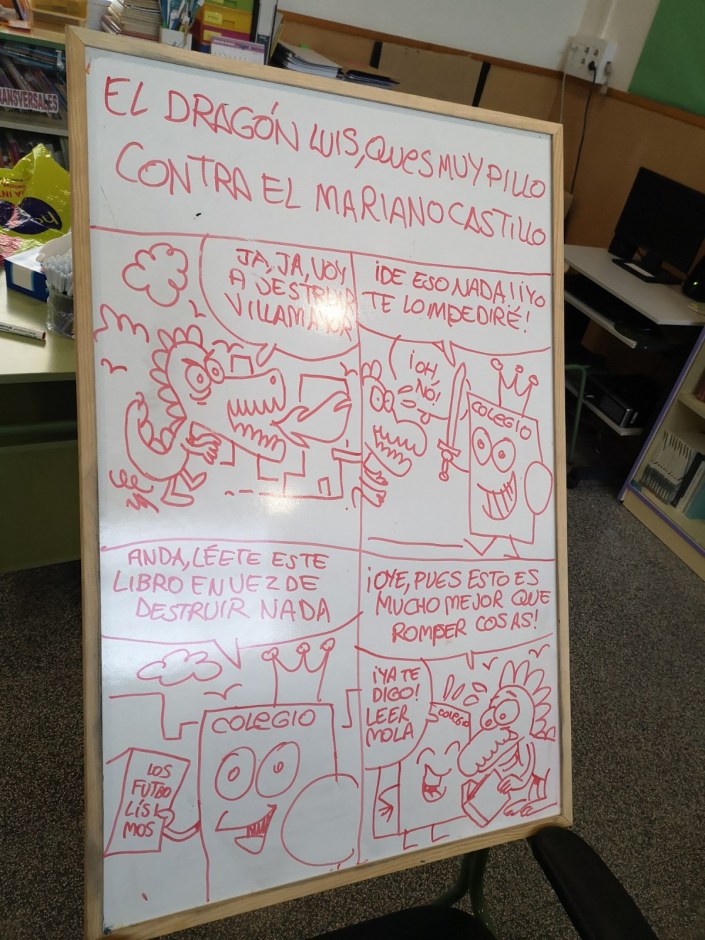 TRANSVERSALES
EL DRAGÓN LUIS, QUES MUY PILLO
CONTRA EL MARIANO CASTILLO
JA, JA, VOY
A DESTRUIR
VILLAMAYOR
¡DE ESO NADA! ¡YO
TE LO IMPEDIRÉ!
¡OH,
NO!
COLEGIO
ANDA, LÉETE ESTE
LIBRO EN VEZ DE
DESTRUIR NADA
COLEGIO
LOS
FUTBO
LÍSI
MOS
¡OYE, PUES ESTO ES
MUCHO MEJOR QUE
ROMPER COSAS!
¡YA TE
DIGO!
LEER
MOLA
COLEGIO